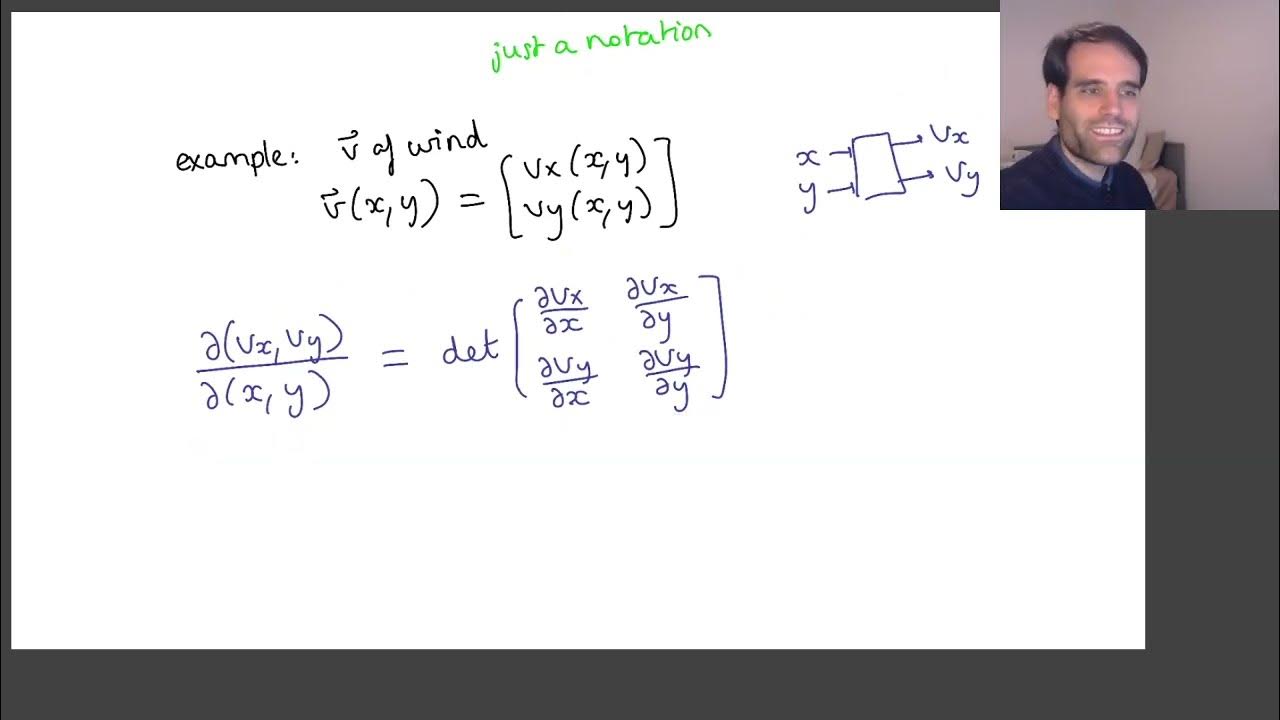 just a notation
example: v⃗ of wind
v⃗(x,y) = [vx(x,y)
vy(x,y)]
x
y
vx
vy
∂(vx,vy)/∂(x,y) = det [∂vx/∂x ∂vx/∂y
∂vy/∂x ∂vy/∂y]